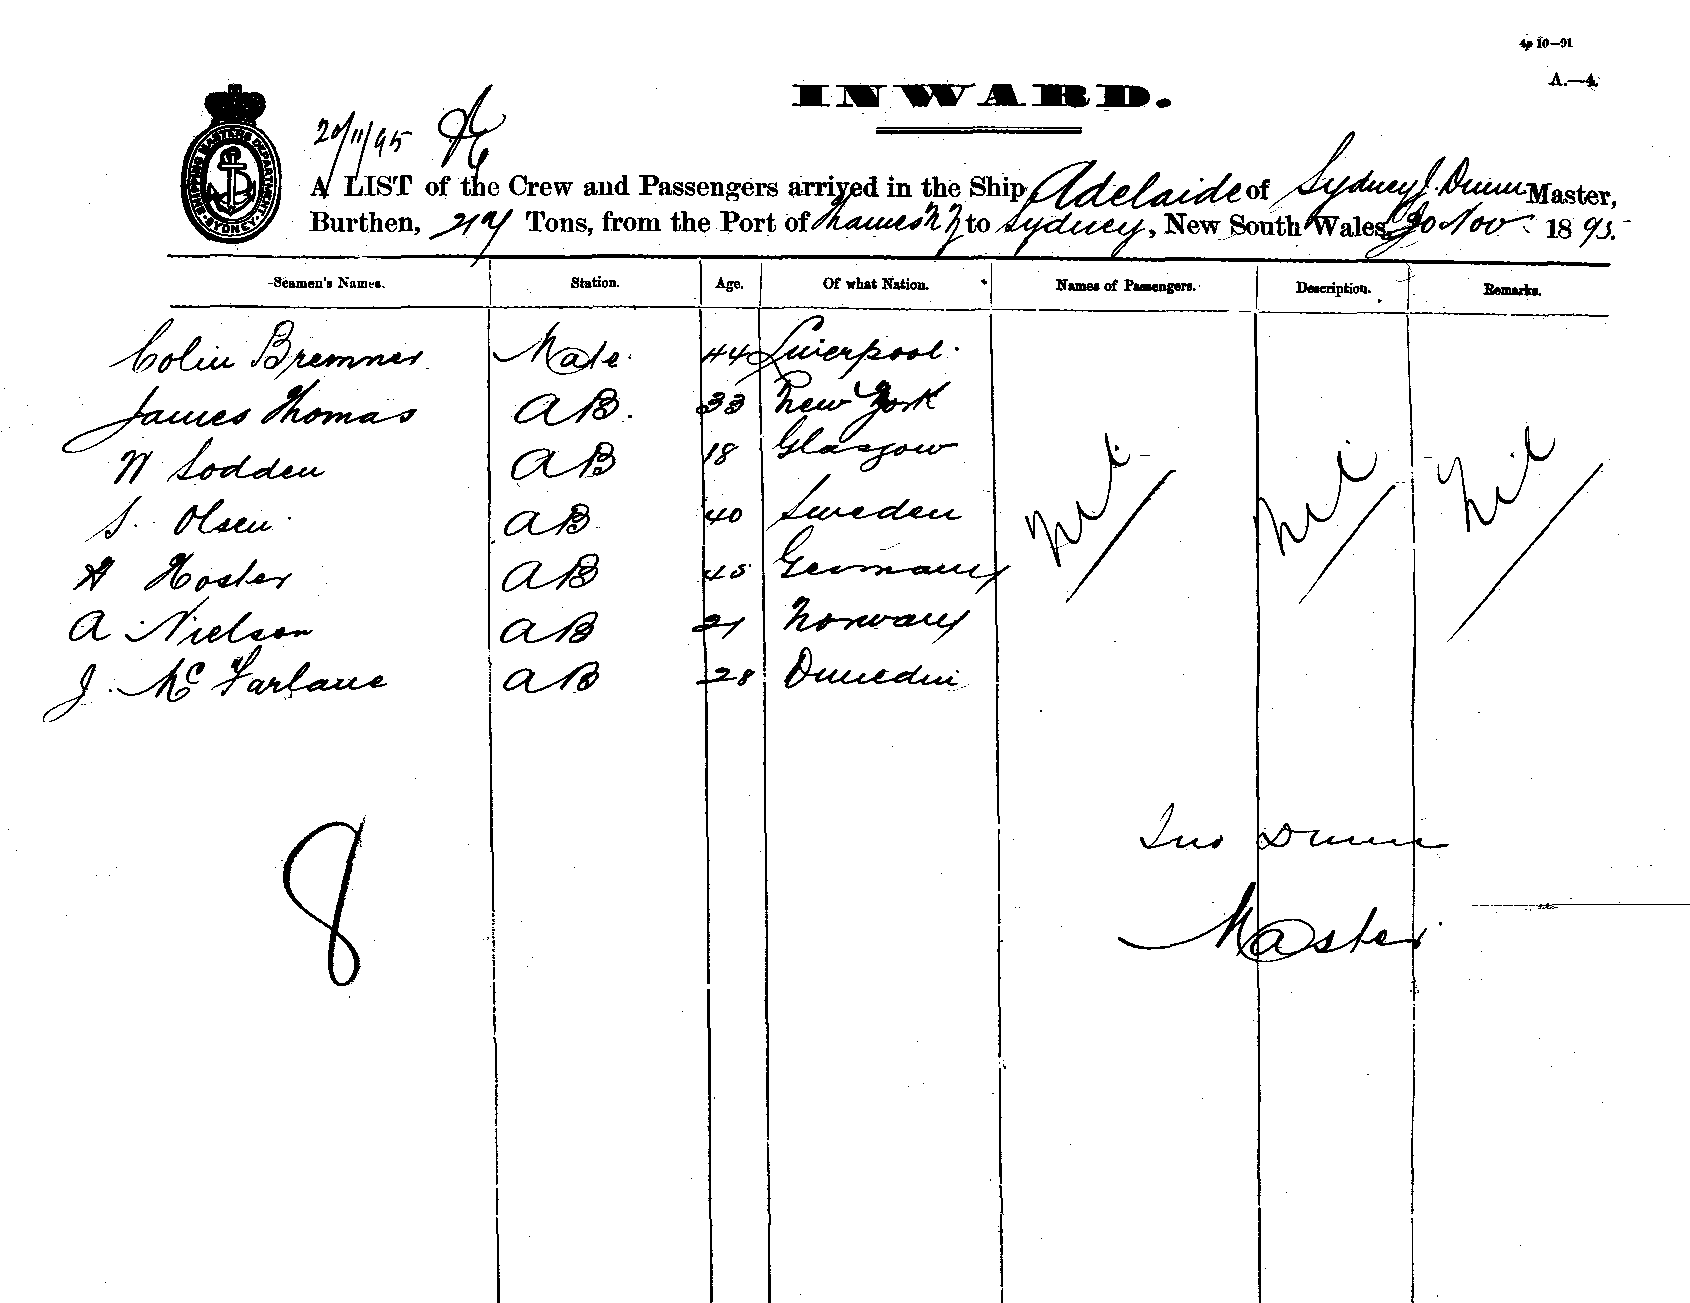 4p 10—91
A.—4.
INWARD.
20/11/95
SHIPPING MASTERS DEPARTMENT SYDNEY
A LIST of the Crew and Passengers arrived in the Ship Adelaide of Sydney J. Dunn Master,
Burthen, Tons, from the Port of Thames NZ to Sydney, New South Wales, 20 Nov 1895.
Seamen's Names. Station. Age. Of what Nation. Names of Passengers. Description. Remarks.
Colin Bremner Mate 44 Liverpool.
James Thomas AB. 33 New York
W Sodden AB 18 Glasgow
S. Olsen AB 40 Sweden
H Hoster AB 45 Germany
A Nielson AB 21 Norway
J. McFarlane AB 28 Dunedin
Nil Nil Nil
8
Jno Dunn
Master